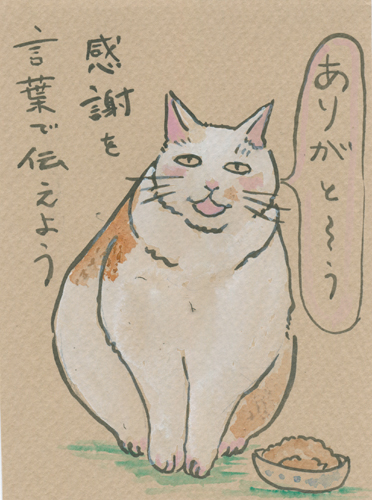 感謝を
言葉で伝えよう
ありがと〜う